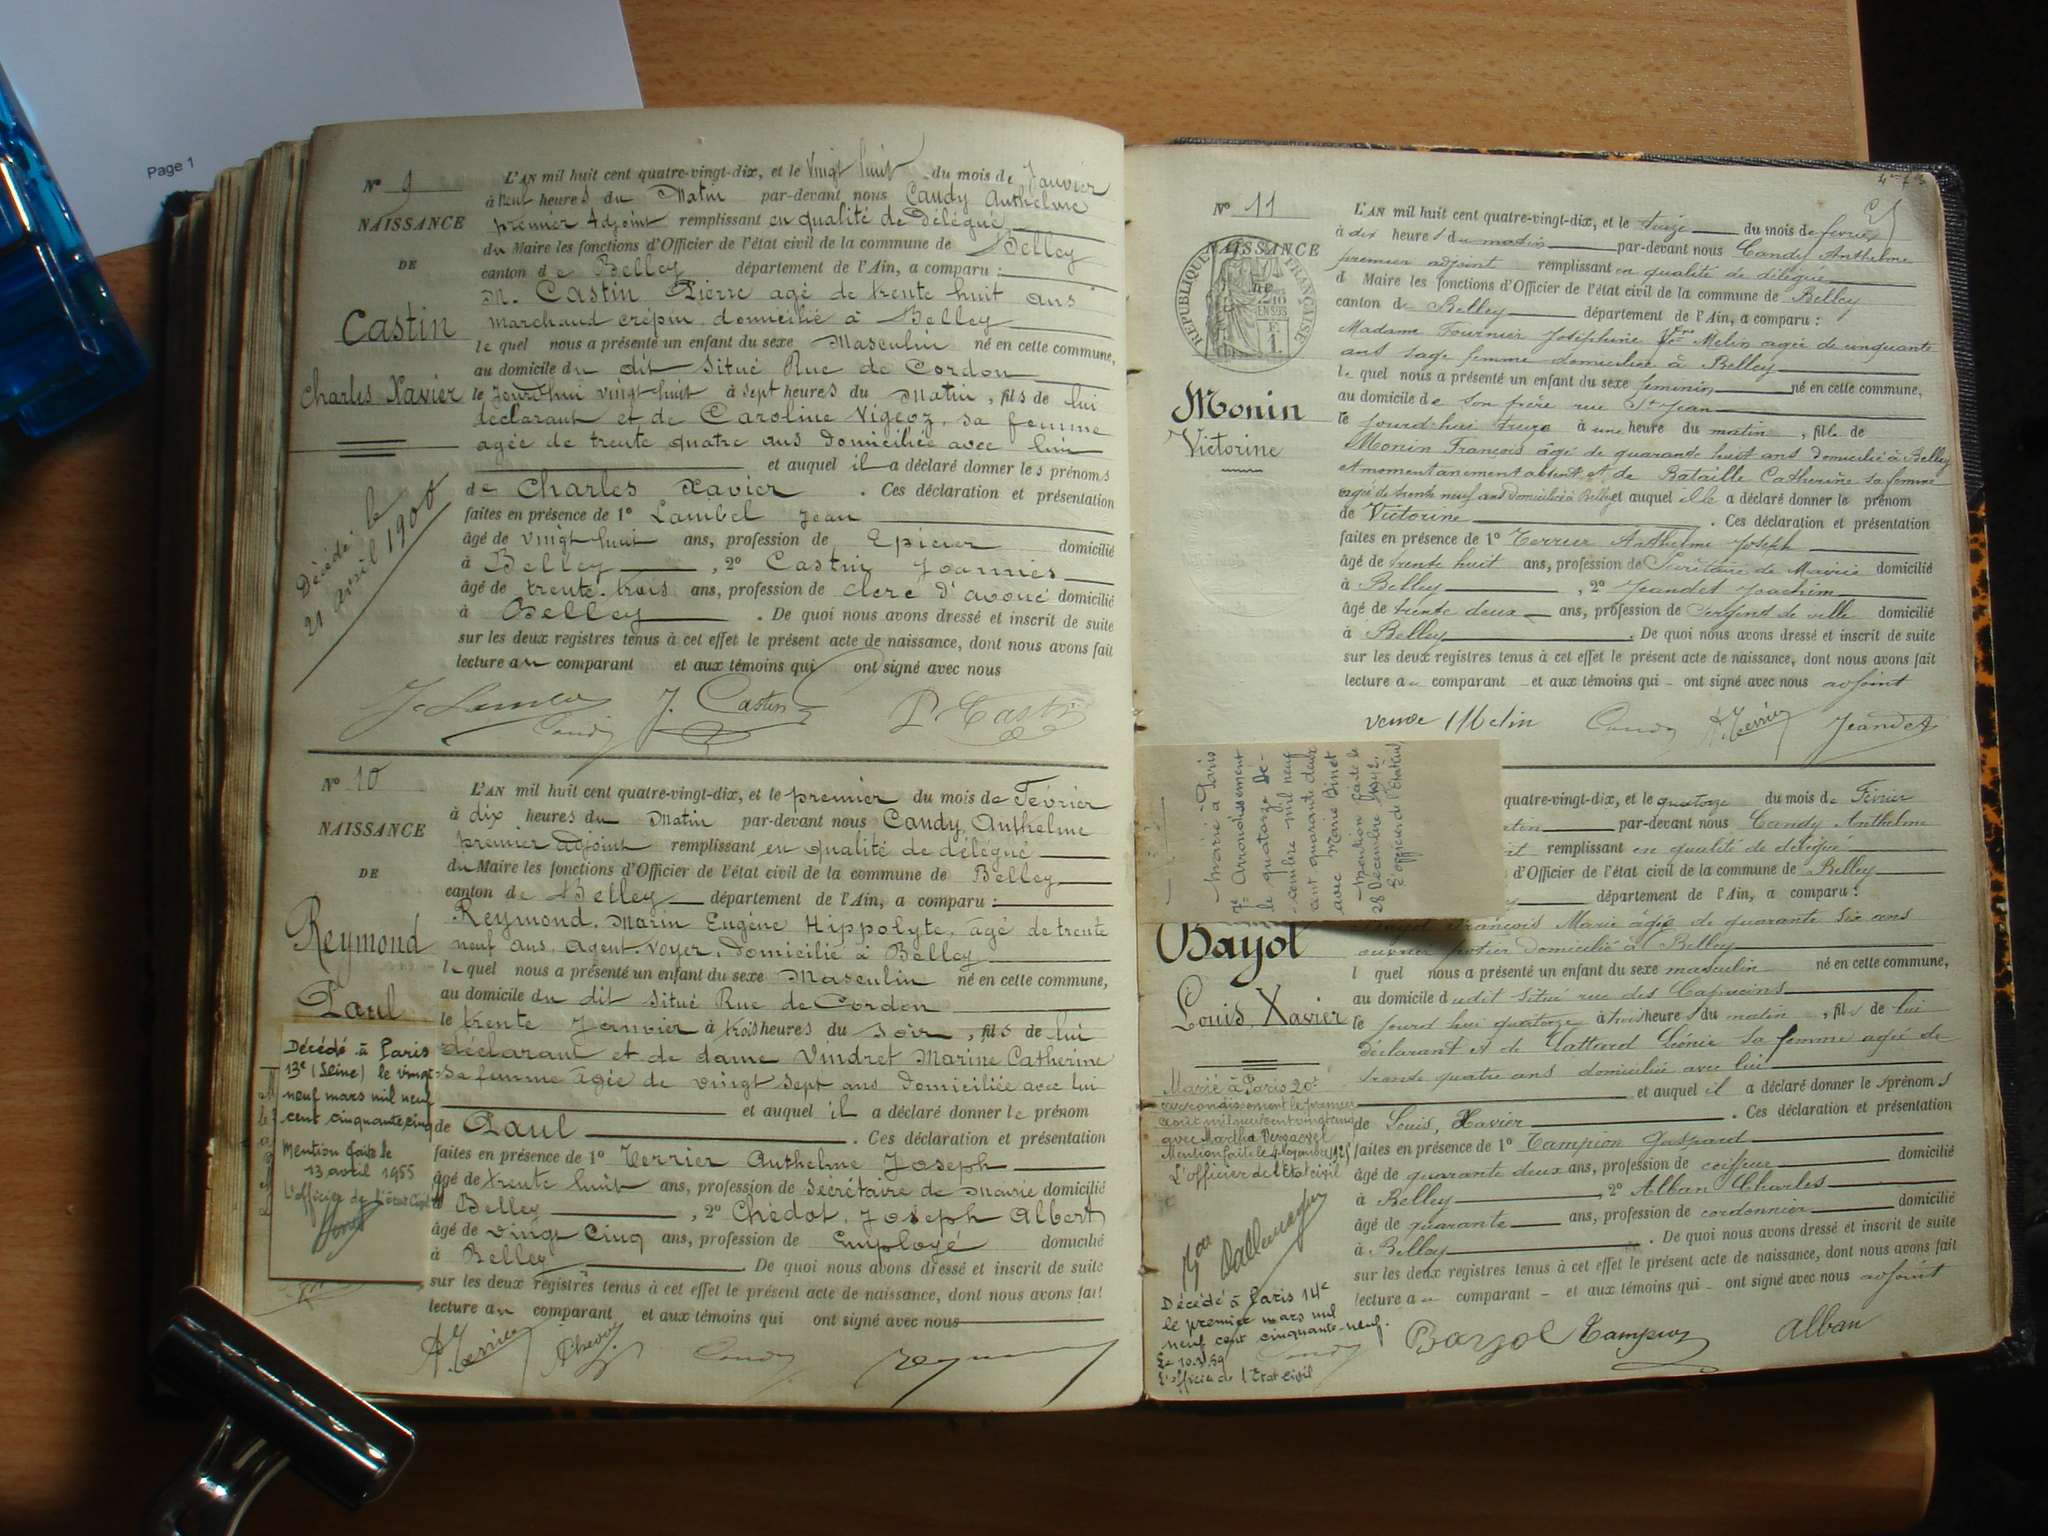 Page 1
N° 9
NAISSANCE
DE
Castin
Charles Xavier
Décédé le
21 avril 1900
L'AN mil huit cent quatre-vingt-dix, et le vingt huit du mois de Janvier
à Neuf heures du Matin par-devant nous Candy Anthelme
premier Adjoint remplissant en qualité de Délégué
du Maire les fonctions d'Officier de l'état civil de la commune de Belley
canton de Belley département de l'Ain, a comparu :
M. Castin Pierre agé de trente huit ans
Marchand crépin domicilié à Belley
lequel nous a présenté un enfant du sexe Masculin né en cette commune,
au domicile du dit situé Rue de Cordon
le Jourd'hui vingt-huit à sept heures du Matin, fils de lui
déclarant et de Caroline Vigeoz, sa femme
agée de trente quatre ans domiciliée avec lui
et auquel il a déclaré donner les prénoms
de Charles Xavier. Ces déclaration et présentation
faites en présence de 1° Lambel Jean
âgé de vingt huit ans, profession de Epicier domicilié
à Belley, 2° Castin Joannès
âgé de trente-trois ans, profession de clerc d'avoué domicilié
à Belley. De quoi nous avons dressé et inscrit de suite
sur les deux registres tenus à cet effet le présent acte de naissance, dont nous avons fait
lecture au comparant et aux témoins qui ont signé avec nous
J. Castin P. Castin
Candy
N° 10
NAISSANCE
DE
Reymond
Paul
Décédé à Paris
13e (Seine) le vingt-
neuf mars mil neuf
cent cinquante cinq
Mention faite le
13 avril 1955
L'officier de l'état civil
L'AN mil huit cent quatre-vingt-dix, et le premier du mois de Février
à dix heures du Matin par-devant nous Candy Anthelme
premier adjoint remplissant en qualité de délégué
du Maire les fonctions d'Officier de l'état civil de la commune de Belley
canton de Belley département de l'Ain, a comparu :
Reymond, Marin Eugène Hippolyte, âgé de trente
neuf ans, Agent-Voyer, domicilié à Belley
lequel nous a présenté un enfant du sexe Masculin né en cette commune,
au domicile du dit situé Rue de Cordon
le trente Janvier à trois heures du soir, fils de lui
déclarant et de dame Vindret Marine Catherine
sa femme âgée de vingt sept ans domiciliée avec lui
et auquel il a déclaré donner le prénom
de Paul. Ces déclaration et présentation
faites en présence de 1° Terrier Anthelme Joseph
âgé de trente huit ans, profession de secrétaire de Mairie domicilié
à Belley, 2° Chedot, Joseph Albert
âgé de vingt cinq ans, profession de Employé domicilié
à Belley. De quoi nous avons dressé et inscrit de suite
sur les deux registres tenus à cet effet le présent acte de naissance, dont nous avons fait
lecture au comparant et aux témoins qui ont signé avec nous
A. Terrier Candy
N° 11
NAISSANCE
DE
RÉPUBLIQUE FRANÇAISE
Monin
Victorine
L'AN mil huit cent quatre-vingt-dix, et le treize du mois de février
à dix heures du matin par-devant nous Candy Anthelme
premier adjoint remplissant en qualité de délégué
d Maire les fonctions d'Officier de l'état civil de la commune de Belley
canton de Belley département de l'Ain, a comparu :
Madame Fournier Joséphine Vve Melin agée de cinquante
ans sage femme domiciliée à Belley
le quel nous a présenté un enfant du sexe féminin né en cette commune,
au domicile de son père rue St Jean
le jourd'hui treize à une heure du matin, fille de
Monin François âgé de quarante huit ans domicilié à Belley
et momentanement absent et de Bataille Catherine sa femme
agée de trente neuf ans domiciliée à Belley et auquel elle a déclaré donner le prénom
de Victorine. Ces déclaration et présentation
faites en présence de 1° Terrier Anthelme Joseph
âgé de trente huit ans, profession de Secrétaire de Mairie domicilié
à Belley, 2° Jeandet Joachim
âgé de trente deux ans, profession de Sergent de ville domicilié
à Belley. De quoi nous avons dressé et inscrit de suite
sur les deux registres tenus à cet effet le présent acte de naissance, dont nous avons fait
lecture a comparant et aux témoins qui ont signé avec nous adjoint
veuve Melin Candy A. Terrier Jeandet
Marié à Paris
7e Arrondissement
le quatorze Dé-
-cembre mil neuf
cent quarante deux
avec Marie Binet
Mention faite le
28 décembre 1942
L'officier de l'État civil
Bayol
Louis, Xavier
Marié à Paris 20e
arrondissement le premier
Mention faite le
L'officier de l'État civil
Décédé à Paris 14e
le premier mars mil
neuf cent cinquante-neuf.
Le 10.3.59
L'officier de l'État civil
quatre-vingt-dix, et le quatorze du mois de Février
matin par-devant nous Candy Anthelme
remplissant en qualité de délégué
d'Officier de l'état civil de la commune de Belley
département de l'Ain, a comparu :
Bayol François Marie âgé de quarante six ans
ouvrier potier domicilié à Belley
l quel nous a présenté un enfant du sexe masculin né en cette commune,
au domicile dudit situé rue des Capucins
le jourd'hui quatorze à trois heures du matin, fils de lui
déclarant et de Léonie sa femme agée de
trente quatre ans domiciliée avec lui
et auquel il a déclaré donner les prénoms
de Louis, Xavier. Ces déclaration et présentation
faites en présence de 1° Campion Gaspard
âgé de quarante deux ans, profession de coiffeur domicilié
à Belley, 2° Alban Charles
âgé de quarante ans, profession de cordonnier domicilié
à Belley. De quoi nous avons dressé et inscrit de suite
sur les deux registres tenus à cet effet le présent acte de naissance, dont nous avons fait
lecture a comparant et aux témoins qui ont signé avec nous adjoint
Candy Bayol Campion Alban